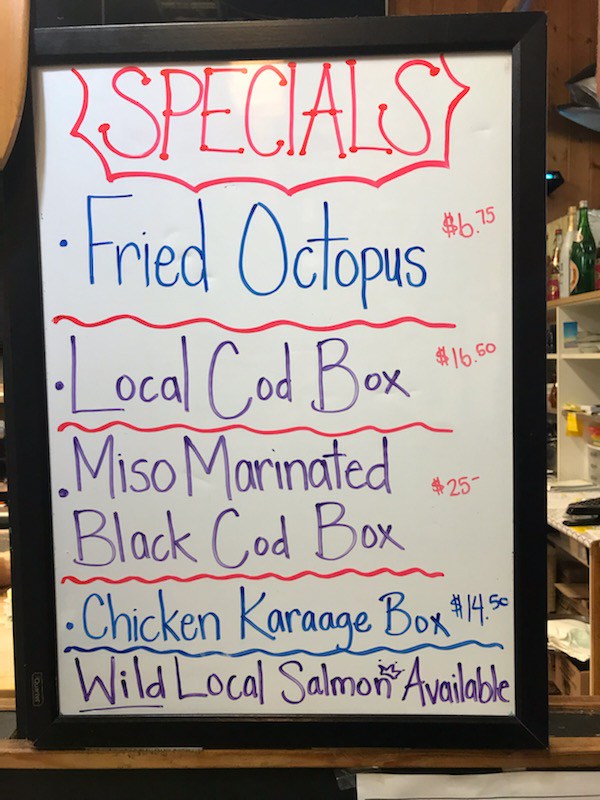 SPECIALS
· Fried Octopus $6.75
· Local Cod Box $16.50
· Miso Marinated
Black Cod Box $25-
· Chicken Karaage Box $14.50
Wild Local Salmon Available
Quartet